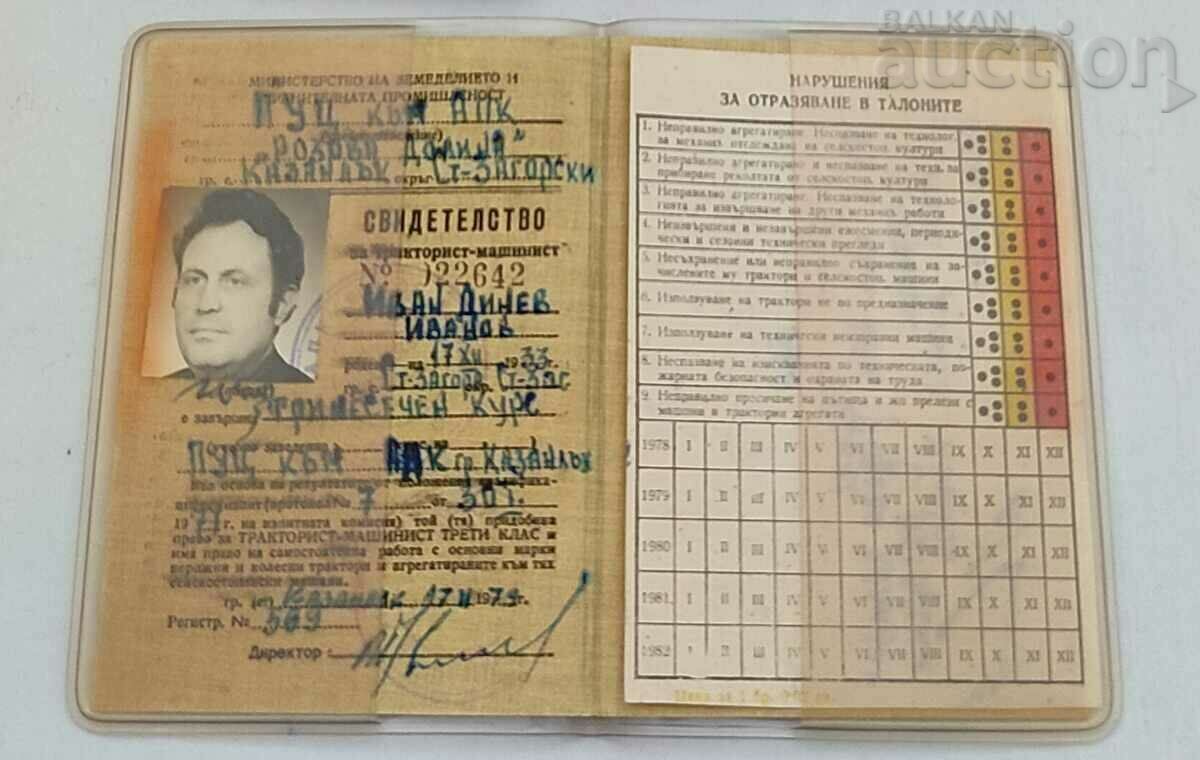 BALKAN
auction
МИНИСТЕРСТВО НА ЗЕМЕДЕЛИЕТО И
ХРАНИТЕЛНАТА ПРОМИШЛЕНОСТ
ПУЦ КЪМ АПК
"РОЗОВА ДОЛИНА"
КАЗАНЛЪК окръг Ст-Загорски
СВИДЕТЕЛСТВО
за "тракторист-машинист"
№ 022642
ИВАН ДИНЕВ
ИВАНОВ
роден на 17 XII 1933
Ст-Загора
с завършен ТРИМЕСЕЧЕН КУРС
ПУЦ КЪМ АПК гр. КАЗАНЛЪК
въз основа на
(протокол № 7 от
г. на изпитната комисия) той (тя) придобива
право за ТРАКТОРИСТ-МАШИНИСТ ТРЕТИ КЛАС и
има право на самостоятелна работа с основни марки
верижни и колесни трактори и агрегатираните към тях
селскостопански машини.
гр. (с.) Казанлък
Регистр. № 309
Директор:
НАРУШЕНИЯ
ЗА ОТРАЗЯВАНЕ В ТАЛОНИТЕ
1. Неправилно агрегатиране. Неспазване на технолог.
за механиз. отглеждане на селскостоп. култури
2. Неправилно агрегатиране и неспазване на техн. за
прибиране реколтата от селскостоп. култури
3. Неправилно агрегатиране. Неспазване на техноло-
гията за извършване на други механиз. работи
4. Неизвършени и незавършени ежесменни, периоди-
чески и сезонни технически прегледи
5. Несъхранение или неправилно съхранение на за-
числените му трактори и селскостоп. машини
6. Използуване на трактори не по предназначение
7. Използуване на технически неизправни машини
8. Неспазване на изискванията по техническата, по-
жарната безопасност и охраната на труда
9. Неправилно пресичане на пътища и жп прелези с
машини и тракторни агрегати
1978 I II III IV V VI VII VIII IX X XI XII
1979 I II III IV V VI VII VIII IX X XI XII
1980 I II III IV V VI VII VIII IX X XI XII
1981 I II III IV V VI VII VIII IX X XI XII
1982 I II III IV V VI VII VIII IX X XI XII